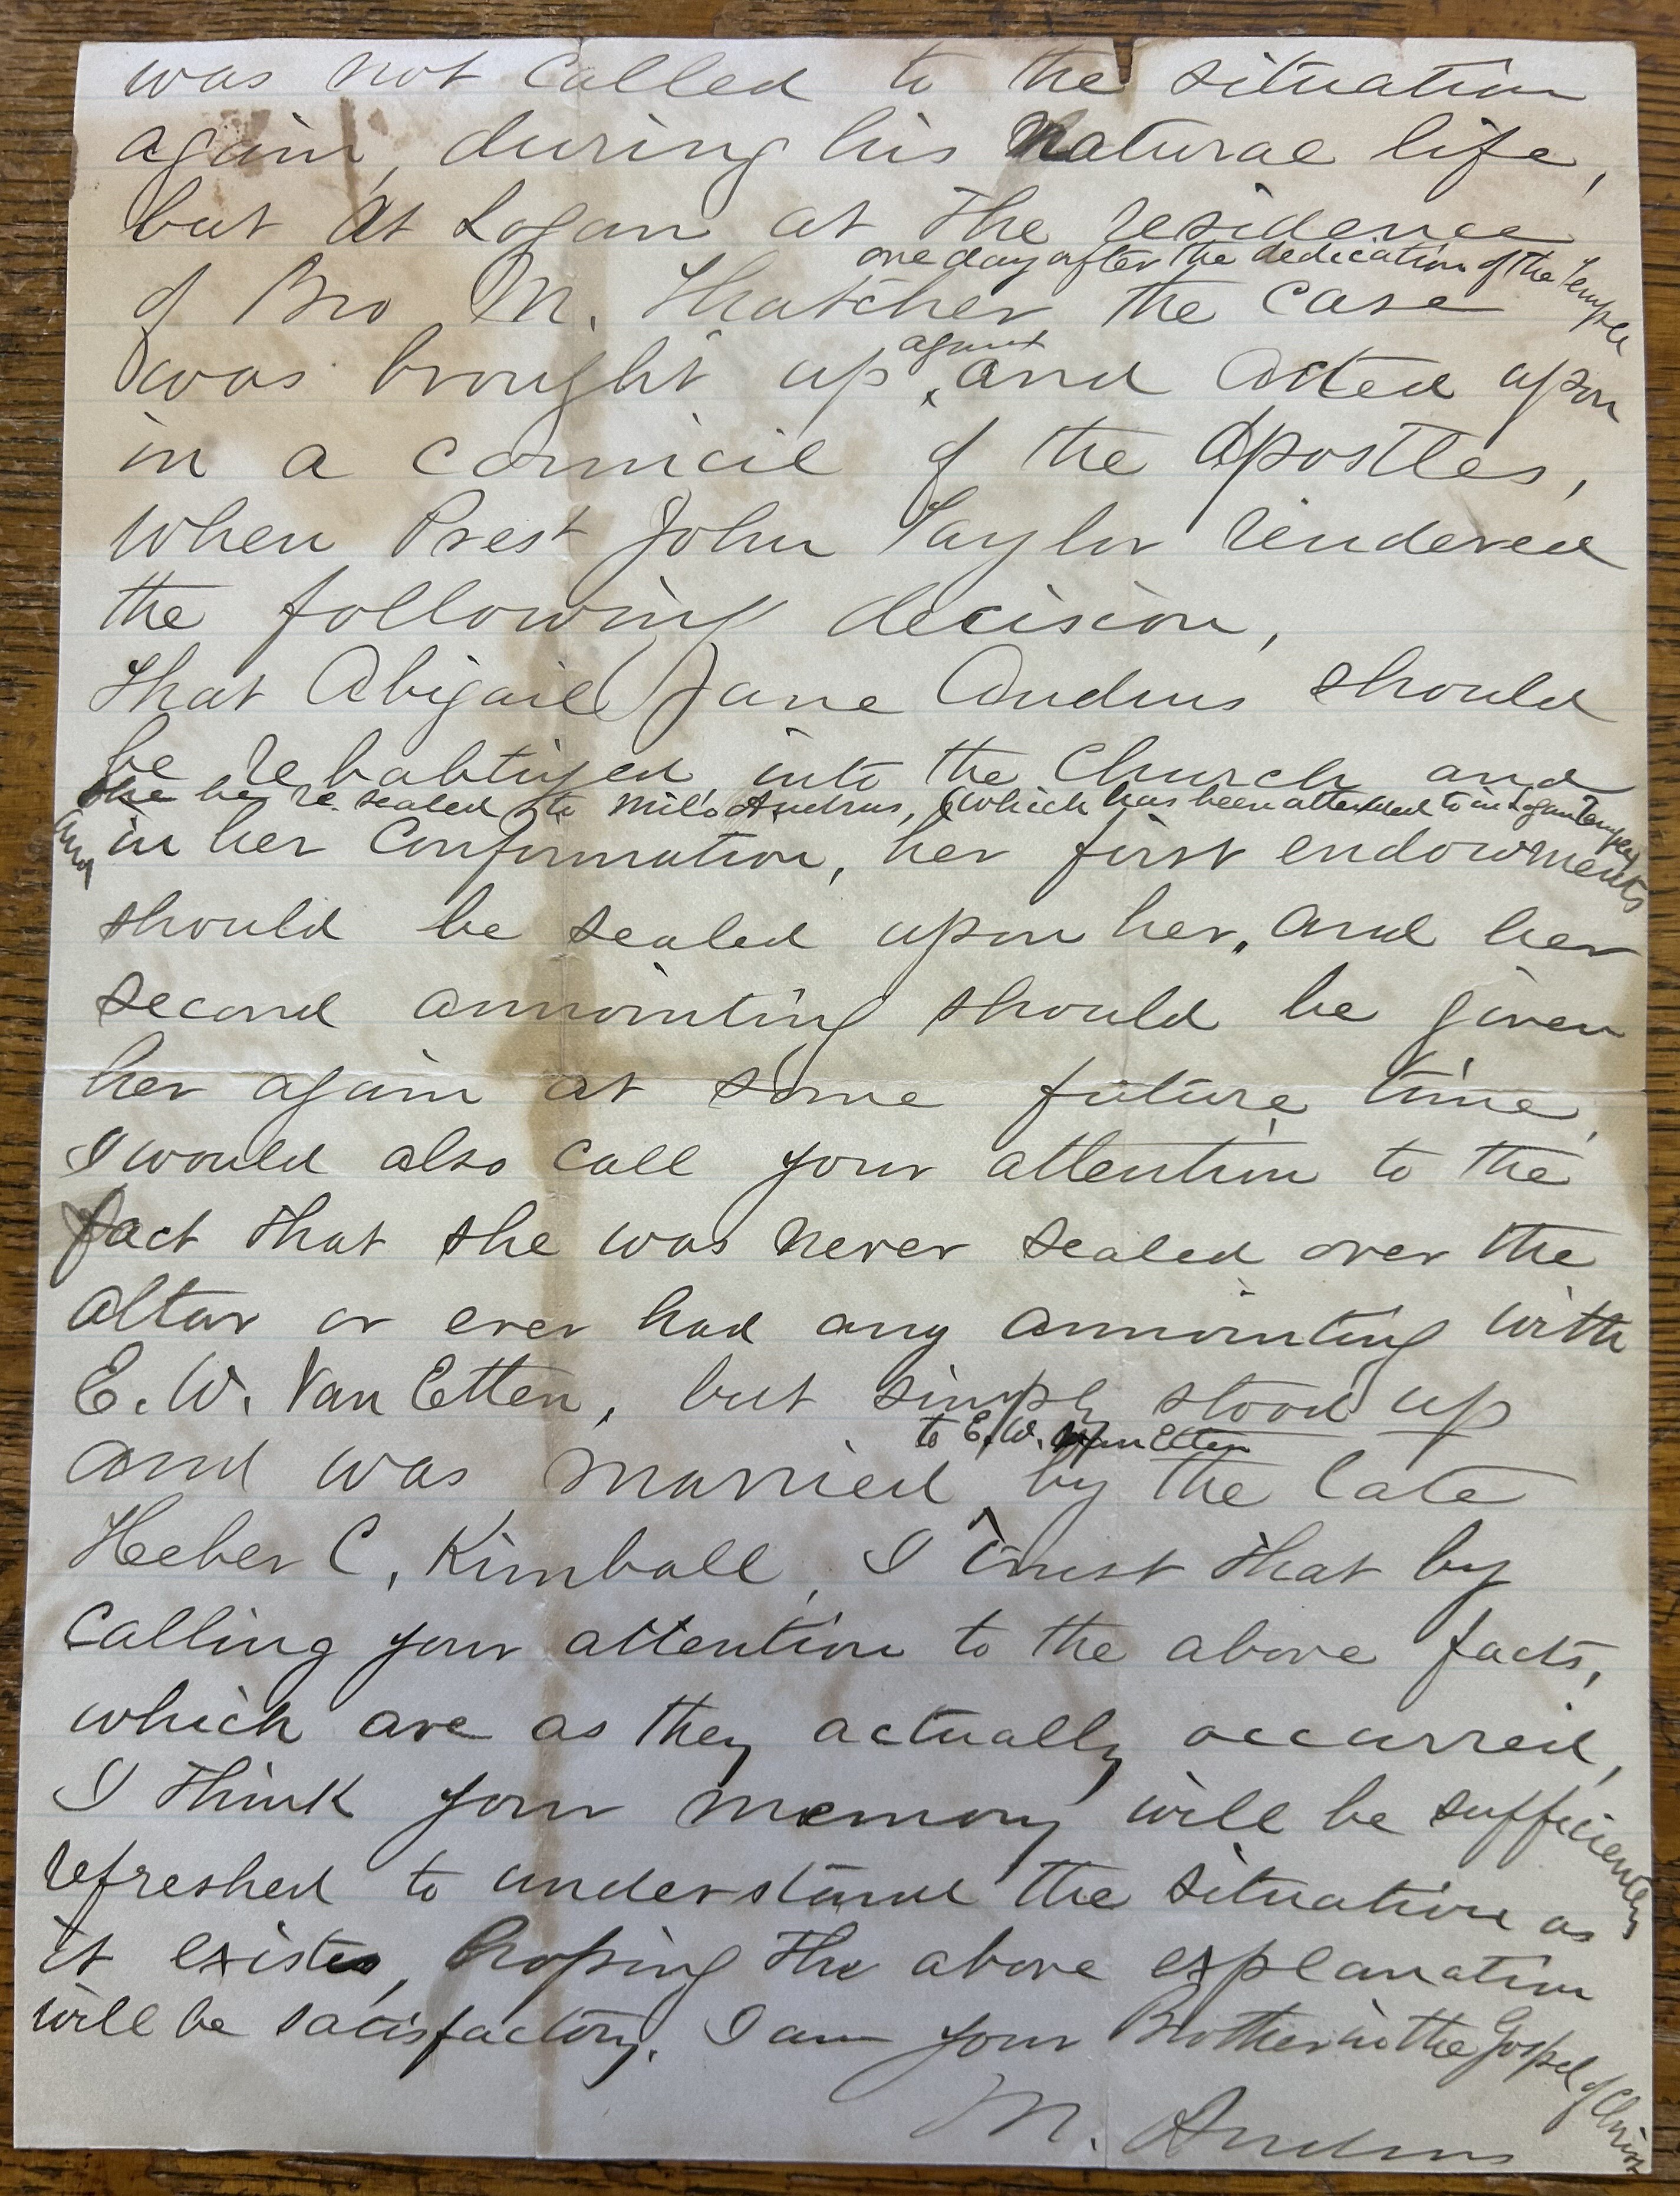 was not called to the situation
again, during his natural life,
but at Logan at the residence
one day after the dedication of the Temple
of Bro M. Thatcher the case
again
was brought up, and acted upon
in a council of the apostles,
when Prest John Taylor rendered
the following decision,
that Abigail Jane Andrus should
be rebabtized into the Church and
she be re-sealed to Milo Andrus, (which has been attended to in Logan Temple)
and in her Confirmation, her first endowments
should be sealed upon her, and her
second annointing should be given
her again at some future time,
I would also call your attention to the
fact that she was never sealed over the
altar or ever had any annointing with
E. W. Van Etten, but simply stood up
to E. W. Van Etten
and was married by the late
Heeber C, Kimball, I trust that by
calling your attention to the above facts,
which are as they actually occurred,
I think your memory will be sufficiently
refreshed to understand the situation as
it exists, hoping the above explanation
will be satisfactory. I am your Brother in the Gospel of Christ
M. Andrus